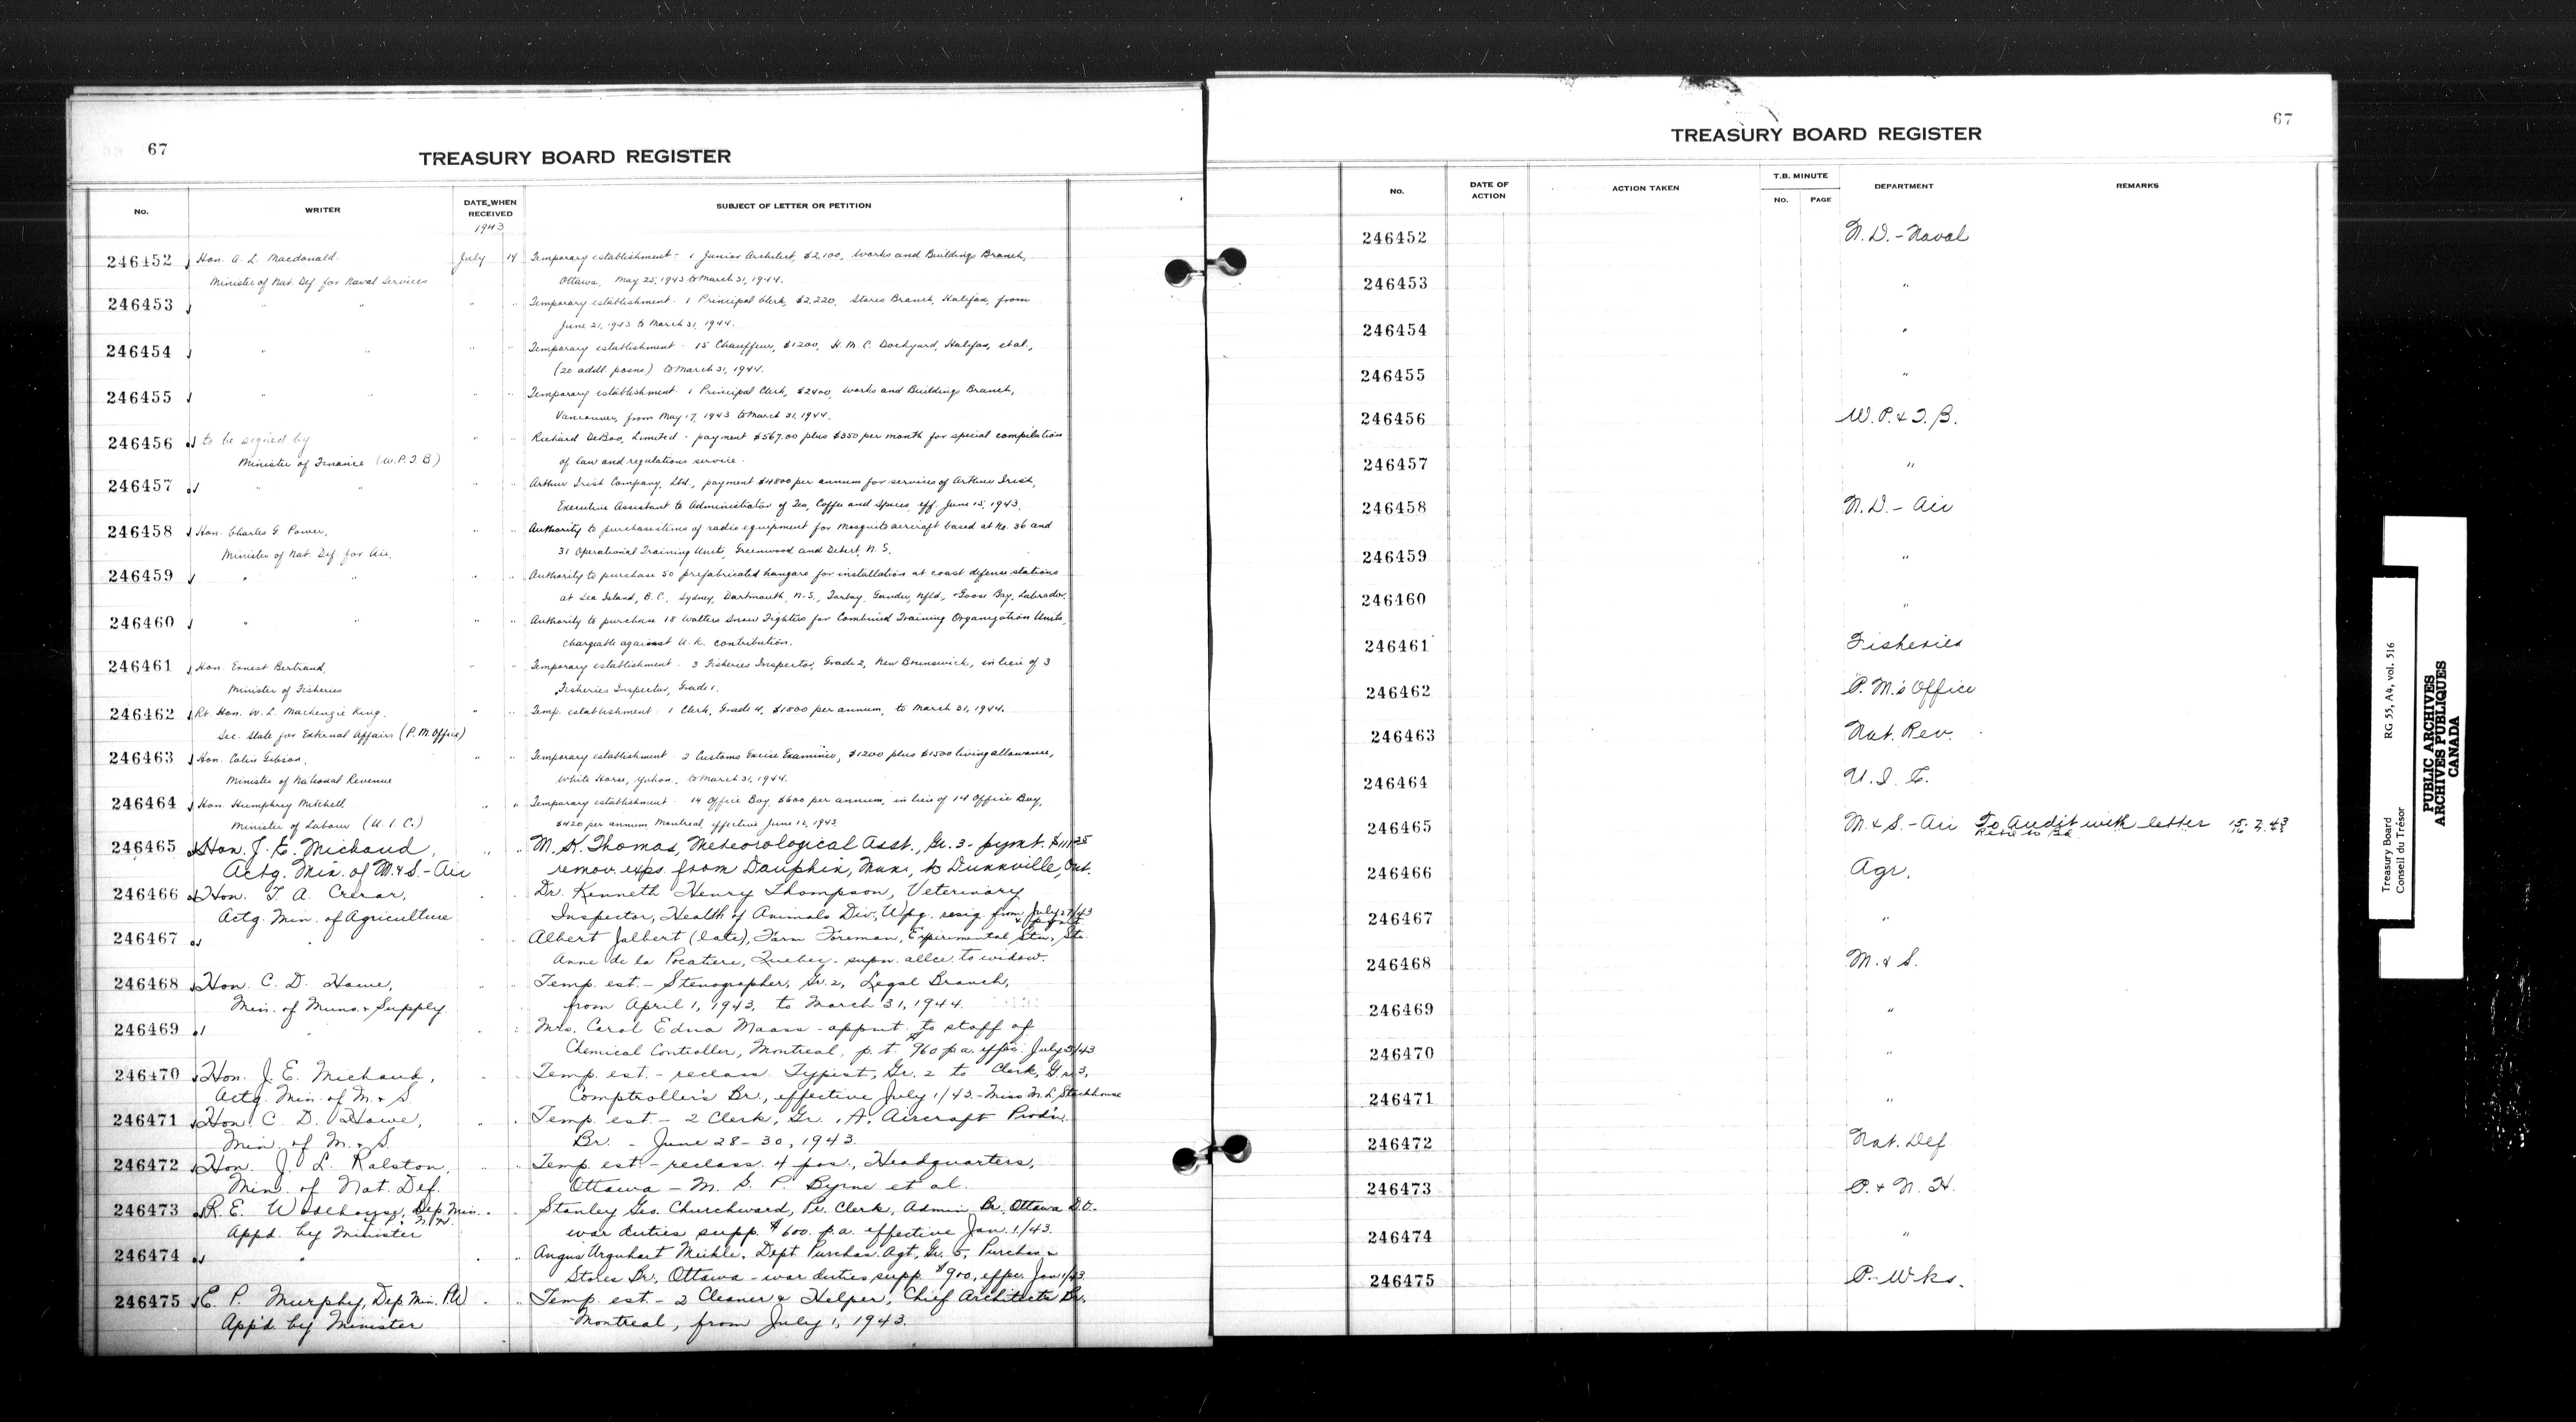 67
TREASURY BOARD REGISTER
No. WRITER DATE WHEN RECEIVED SUBJECT OF LETTER OR PETITION
1943
246452 Hon. A. L. Macdonald July 14 Temporary establishment - 1 Junior Architect, $2,100, Works and Buildings Branch,
Minister of Nat. Def. for Naval Services Ottawa, May 25, 1943 to March 31, 1944.
246453 " " " " Temporary establishment - 1 Principal Clerk, $2,220, Stores Branch, Halifax, from
June 21, 1943 to March 31, 1944.
246454 " " " " Temporary establishment - 15 Chauffeur, $1200, H.M.C. Dockyard, Halifax, et al.,
(20 addl. posns) to March 31, 1944.
246455 " " " " Temporary establishment - 1 Principal Clerk, $2400, Works and Buildings Branch,
Vancouver, from May 17, 1943 to March 31, 1944.
246456 to be signed by " " Richard DeBoo, Limited - payment $567.00 plus $350 per month for special compilation
Minister of Finance (W.P.T.B) of law and regulations service.
246457 " " " " Arthur Irish Company, Ltd., payment $4800 per annum for services of Arthur Irish,
Executive Assistant to Administrator of Tea, Coffee and Spices, eff. June 15, 1943.
246458 Hon. Charles G. Power, " " Authority to purchase items of radio equipment for Mosquito aircraft based at No. 36 and
Minister of Nat. Def for Air. 31 Operational Training Units, Greenwood and Debert, N.S.
246459 " " " " Authority to purchase 50 prefabricated hangars for installation at coast defense stations
at Sea Island, B.C., Sydney, Dartmouth, N.S., Torbay, Gander, Nfld., + Goose Bay, Labrador.
246460 " " " " Authority to purchase 18 Walters Snow Fighters for Combined Training Organization Units,
chargeable against U.K. contribution.
246461 Hon. Ernest Bertrand, " " Temporary establishment - 3 Fisheries Inspector, Grade 2, New Brunswick, in lieu of 3
Minister of Fisheries Fisheries Inspector, Grade 1.
246462 Rt. Hon. W. L. Mackenzie King, " " Temp. establishment - 1 Clerk, Grade 4, $1800 per annum, to March 31, 1944.
Sec. State for External Affairs (P.M. Office)
246463 Hon. Colin Gibson, " " Temporary establishment - 2 Customs Excise Examiner, $1200 plus $1500 living allowance,
Minister of National Revenue White Horse, Yukon, to March 31, 1944.
246464 Hon. Humphrey Mitchell " " Temporary establishment - 14 Office Boy, $600 per annum, in lieu of 14 Office Boy,
Minister of Labour (U.I.C.) $420 per annum, Montreal, effective June 12, 1943.
246465 Hon. J. E. Michaud, " " M. K. Thomas, Meteorological Asst., Gr. 3 - pymt. $111.25
Actg. Min. of M. & S. - Air remov. exps. from Dauphin, Man., to Dunnville, Ont.
246466 Hon. T. A. Crerar, " " Dr. Kenneth Henry Thompson, Veterinary
Actg. Min. of Agriculture Inspector, Health of Animals Div., Wpg. resig. from July 27/43
246467 " " " Albert Jalbert (late), Farm Foreman, Experimental Stn., Ste.
Anne de la Pocatiere, Quebec - supn. allce. to widow.
246468 Hon. C. D. Howe, " " Temp. est. - Stenographer, Gr. 2, Legal Branch,
Min. of Muns. & Supply from April 1, 1943, to March 31, 1944.
246469 " " " Mrs. Carol Edna Maass - appmt. to staff of
Chemical Controller, Montreal, p.t. $960 p.a. effec. July 5/43
246470 Hon. J. E. Michaud, " " Temp. est. - reclass. Typist, Gr. 2 to Clerk, Gr. 3,
Actg. Min. of M. & S. Comptroller's Br., effective July 1/43. - Miss M. L. Stackhouse
246471 Hon. C. D. Howe, " " Temp. est. - 2 Clerk, Gr. 1A, Aircraft Prod'n.
Min. of M. & S. Br. - June 28-30, 1943.
246472 Hon. J. L. Ralston, " " Temp. est. - reclass. 4 pos., Headquarters,
Min. of Nat. Def. Ottawa - M. G. P. Byrne et al.
246473 R. E. Wodehouse, Dep. Min. " " Stanley Geo. Churchward, Pr. Clerk, Admin. Br., Ottawa D.O.
of P. & N.H.
Appd. by Minister war duties supp. $600. p.a. effective Jan. 1/43.
246474 " " " Angus Urquhart Meikle, Dept. Purchas. Agt., Gr. 5, Purchas. &
Stores Br., Ottawa - war duties supp. $900, effec. Jan 1/43
246475 E. P. Murphy, Dep. Min. P.W " " Temp. est. - 2 Cleaner & Helper, Chief Architects Br.
App'd. by Minister Montreal, from July 1, 1943.
67
TREASURY BOARD REGISTER
No. DATE OF ACTION ACTION TAKEN T.B. MINUTE No. PAGE DEPARTMENT REMARKS
246452 N.D. - Naval
246453 "
246454 "
246455 "
246456 W.P. & T.B.
246457 "
246458 N.D. - Air
246459 "
246460 "
246461 Fisheries
246462 P.M.'s Office
246463 Nat. Rev.
246464 U.I.C.
246465 M. & S. - Air To Audit with letter 15.7.43
246466 Agr.
246467 "
246468 M. & S.
246469 "
246470 "
246471 "
246472 Nat. Def
246473 P. & N. H.
246474 "
246475 P. Wks.
Treasury Board RG 55, A4, vol. 516
Conseil du Trésor
PUBLIC ARCHIVES
ARCHIVES PUBLIQUES
CANADA